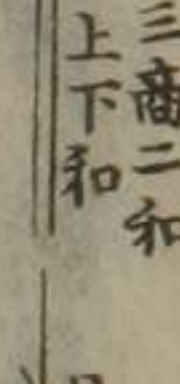 三商二和
上下和